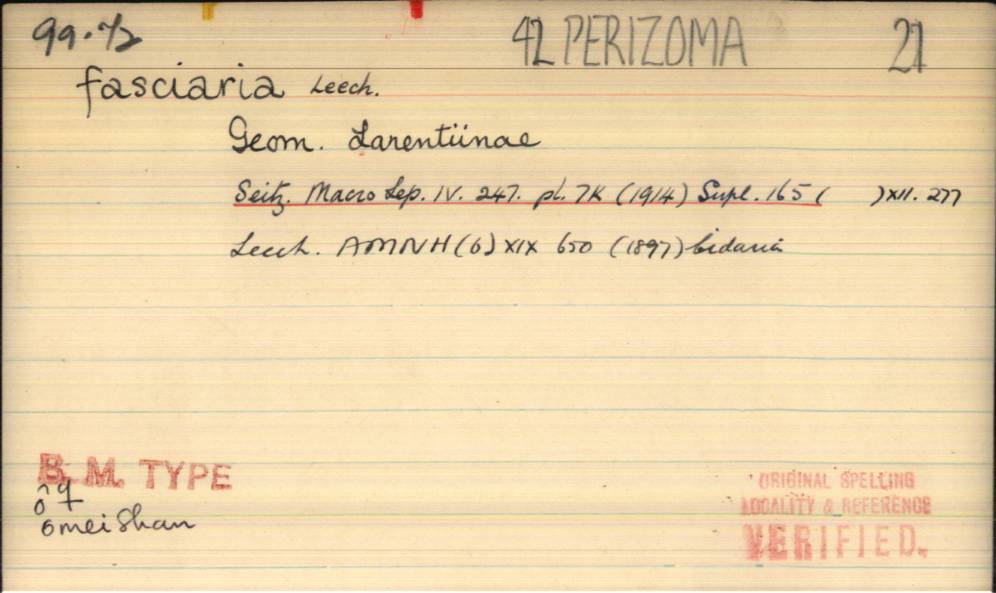 99.72 42 PERIZOMA 21
fasciaria Leech.
Geom. Larentiinae
Seitz. Macro Lep. IV. 247. pl. 7K (1914) Supl. 165 ( ) XII. 277
Leech. AMNH (6) XIX 650 (1897) Cidaria
B. M. TYPE
♂ ♀
Omei Shan
ORIGINAL SPELLING
LOCALITY & REFERENCE
VERIFIED.